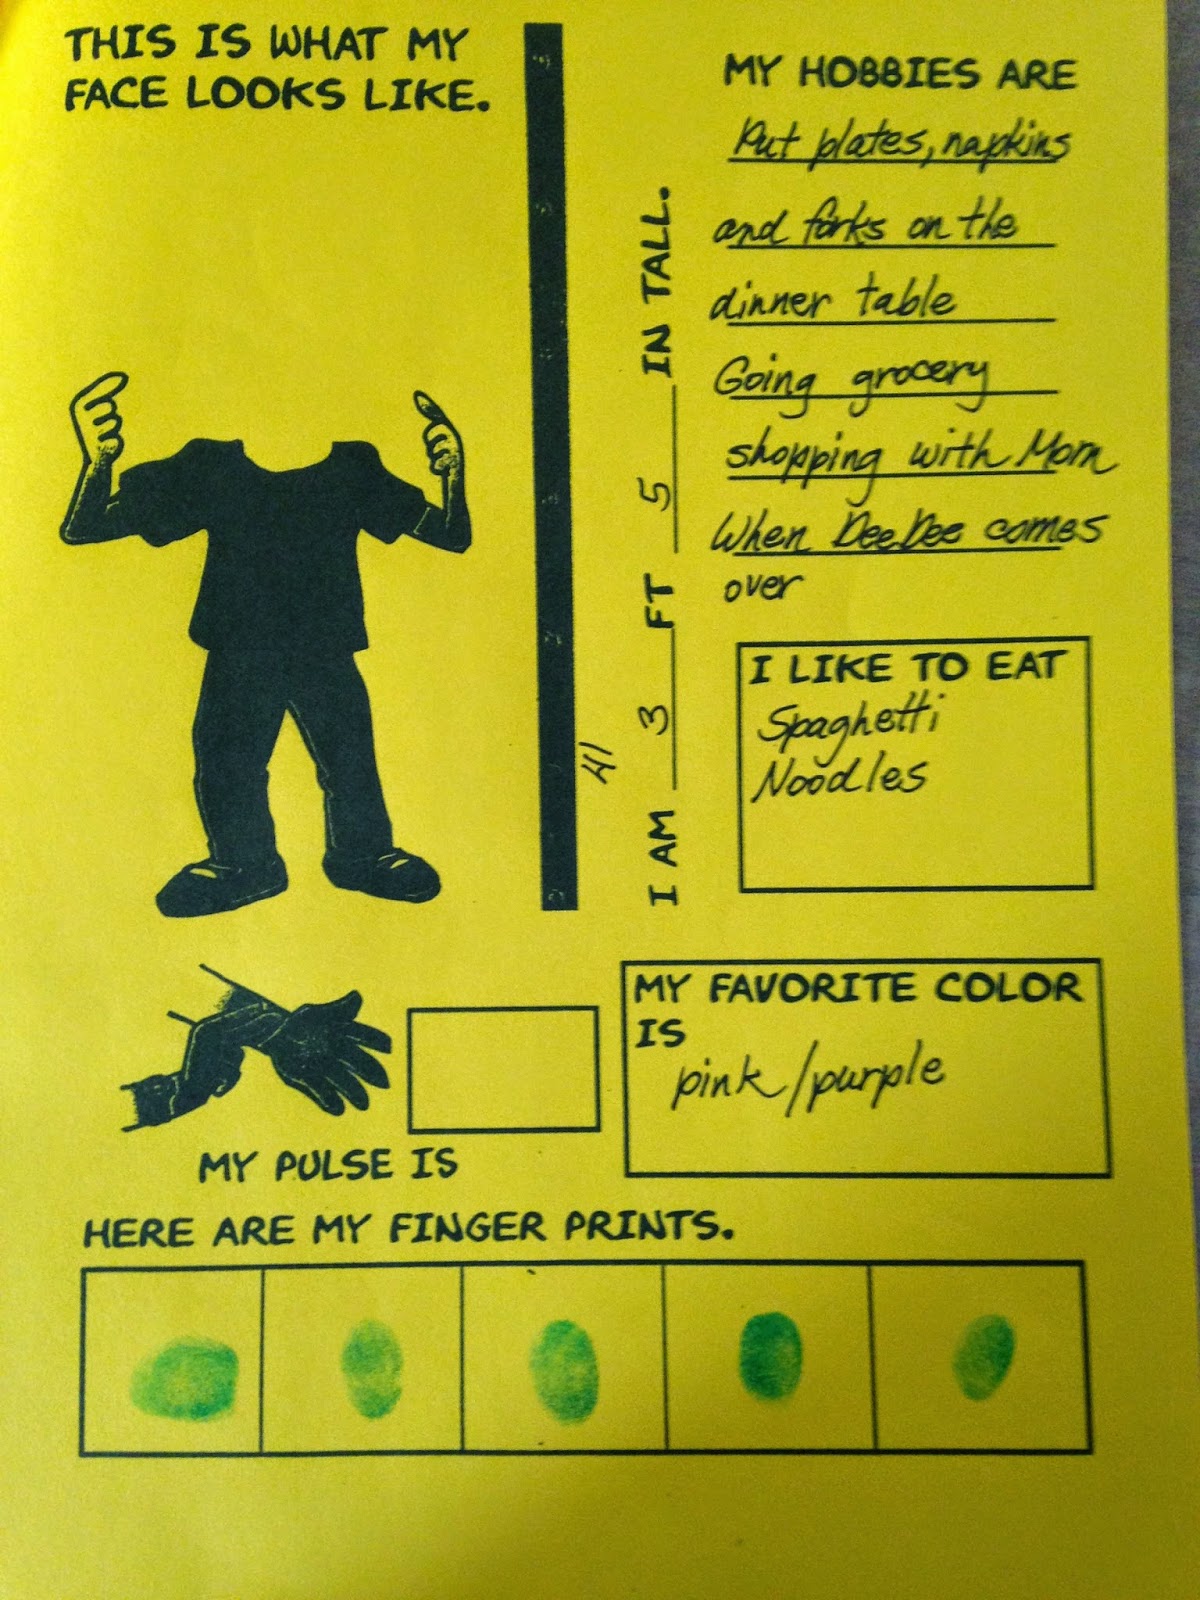 THIS IS WHAT MY
FACE LOOKS LIKE.
MY HOBBIES ARE
Put plates, napkins
and forks on the
dinner table
Going grocery
shopping with Mom
When DeeDee comes
over
I AM 3 FT 5 IN TALL.
41
I LIKE TO EAT
Spaghetti
Noodles
MY PULSE IS
MY FAVORITE COLOR
IS
pink/purple
HERE ARE MY FINGER PRINTS.